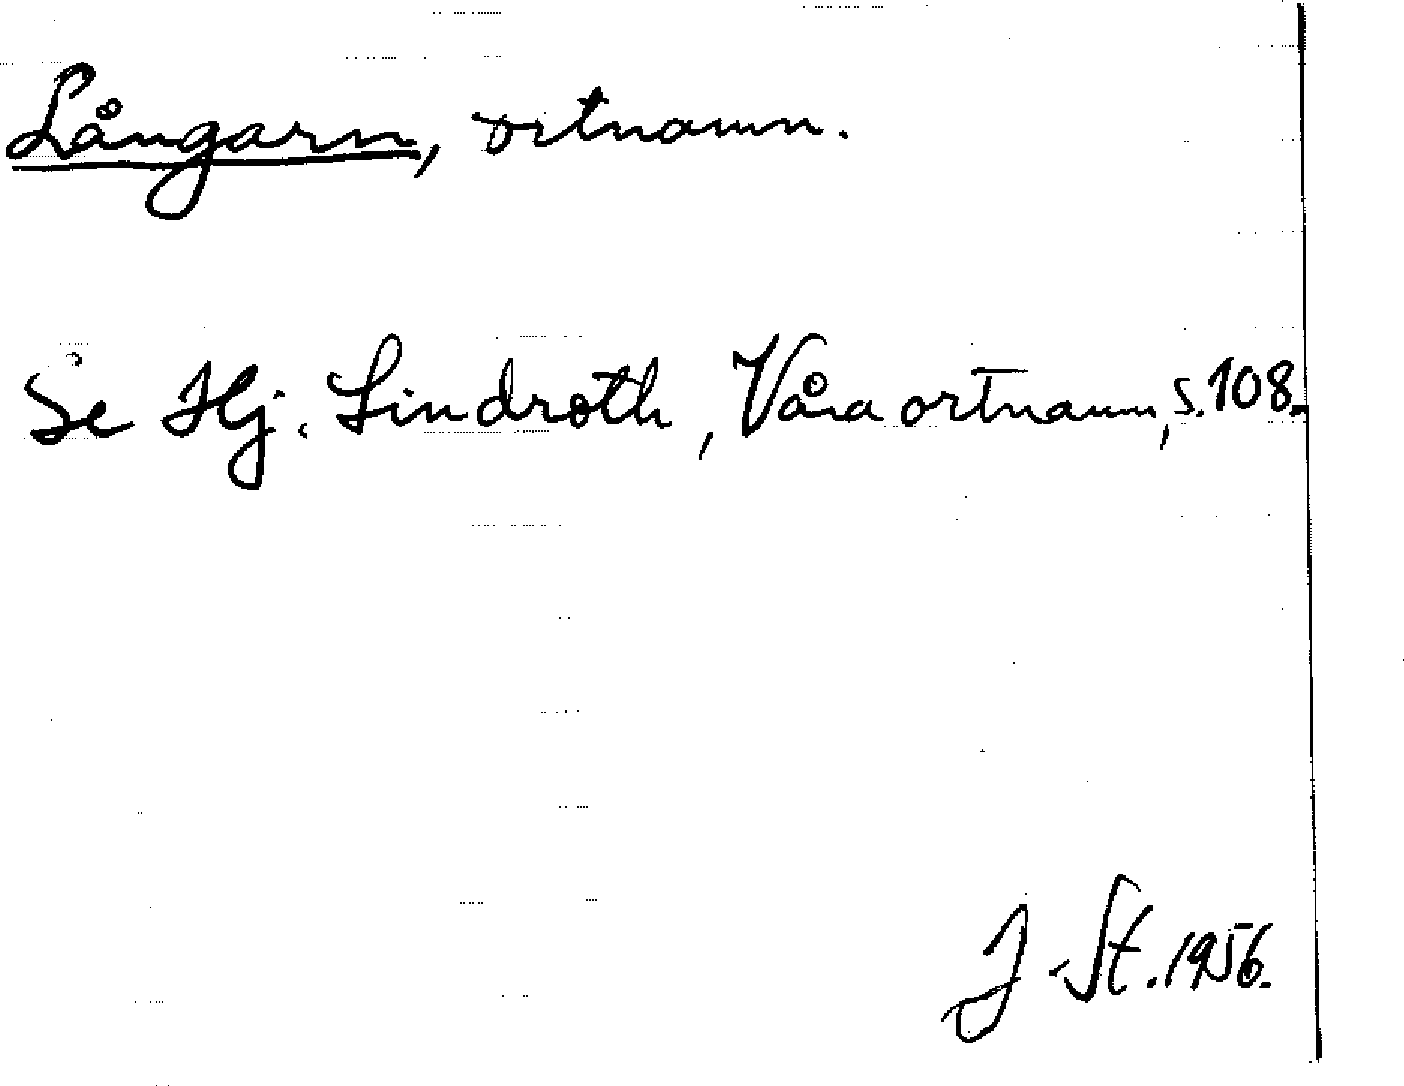 Långarn, ortnamn.
Se Hj. Lindroth, Våra ortnamn, s. 108.
J. St. 1956.